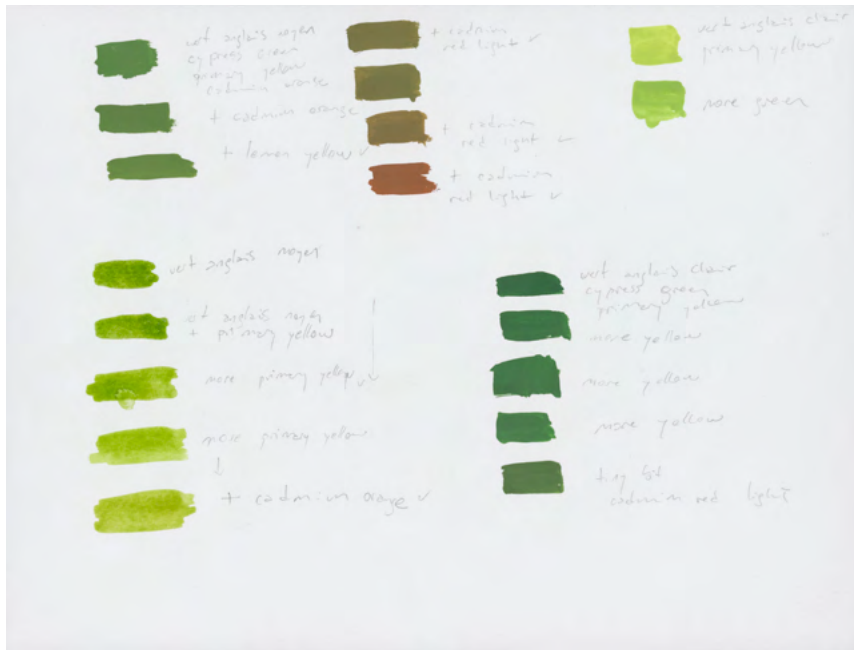 vert anglais moyen
cypress green
primary yellow
cadmium orange
+ cadmium orange
+ lemon yellow ✓
+ cadmium
red light ✓
+ cadmium
red light ✓
+ cadmium
red light ✓
vert anglais clair
primary yellow
more green
vert anglais moyen
vert anglais moyen
+ primary yellow
more primary yellow
more primary yellow
↓
+ cadmium orange ✓
vert anglais clair
cypress green
primary yellow
more yellow
more yellow
more yellow
tiny bit
cadmium red light